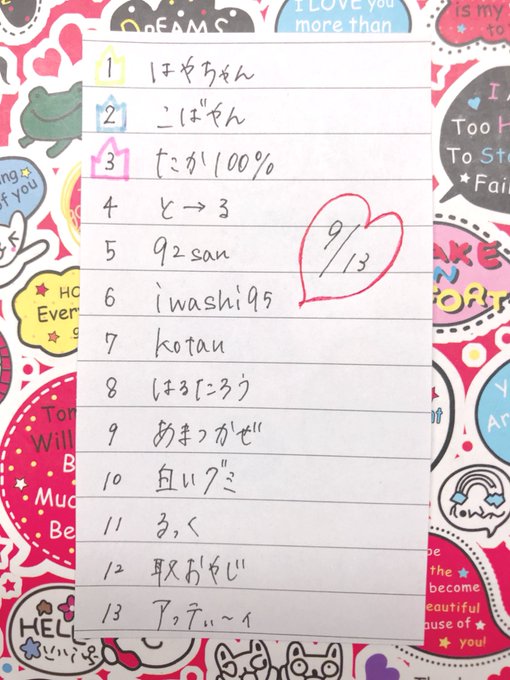 1 はやちゃん
2 こばやん
3 たか100%
4 と→る
5 92san
6 iwashi95
7 kotau
8 はるたろう
9 あまつかぜ
10 白いグミ
11 るっく
12 取おやじ
13 アッティーィ
9/13
DREAMS
I LOVE you
more than
is my
to
I
Too
To St
Fai
of you
HO
Every
Will
Muc
Be
HELL
the
become
eautiful
ause of
you!